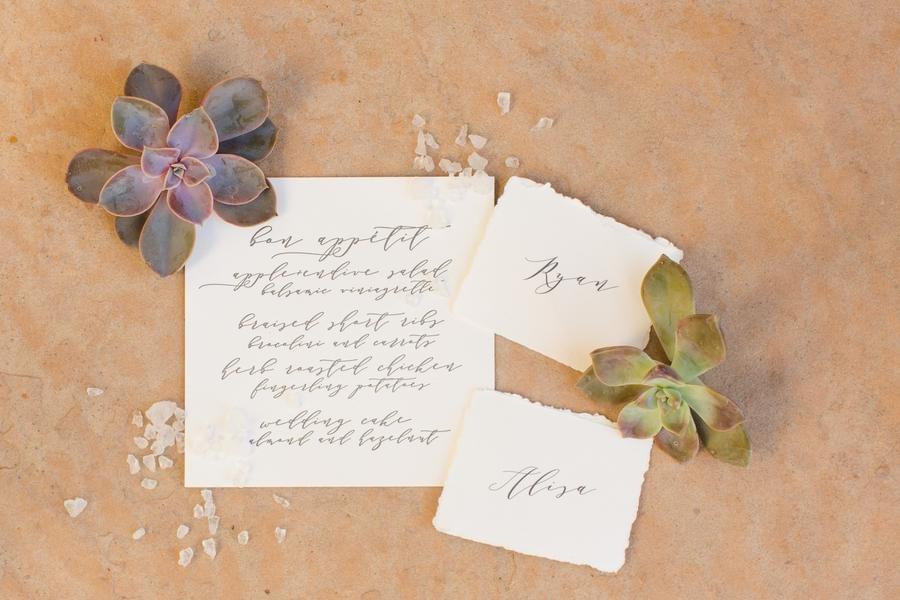 bon appétit
apple+endive salad
balsamic viniagrette
braised short ribs
brocolini and carrots
herb roasted chicken
fingerling potatoes
wedding cake
almond and hazelnut
Ryan
Alisa